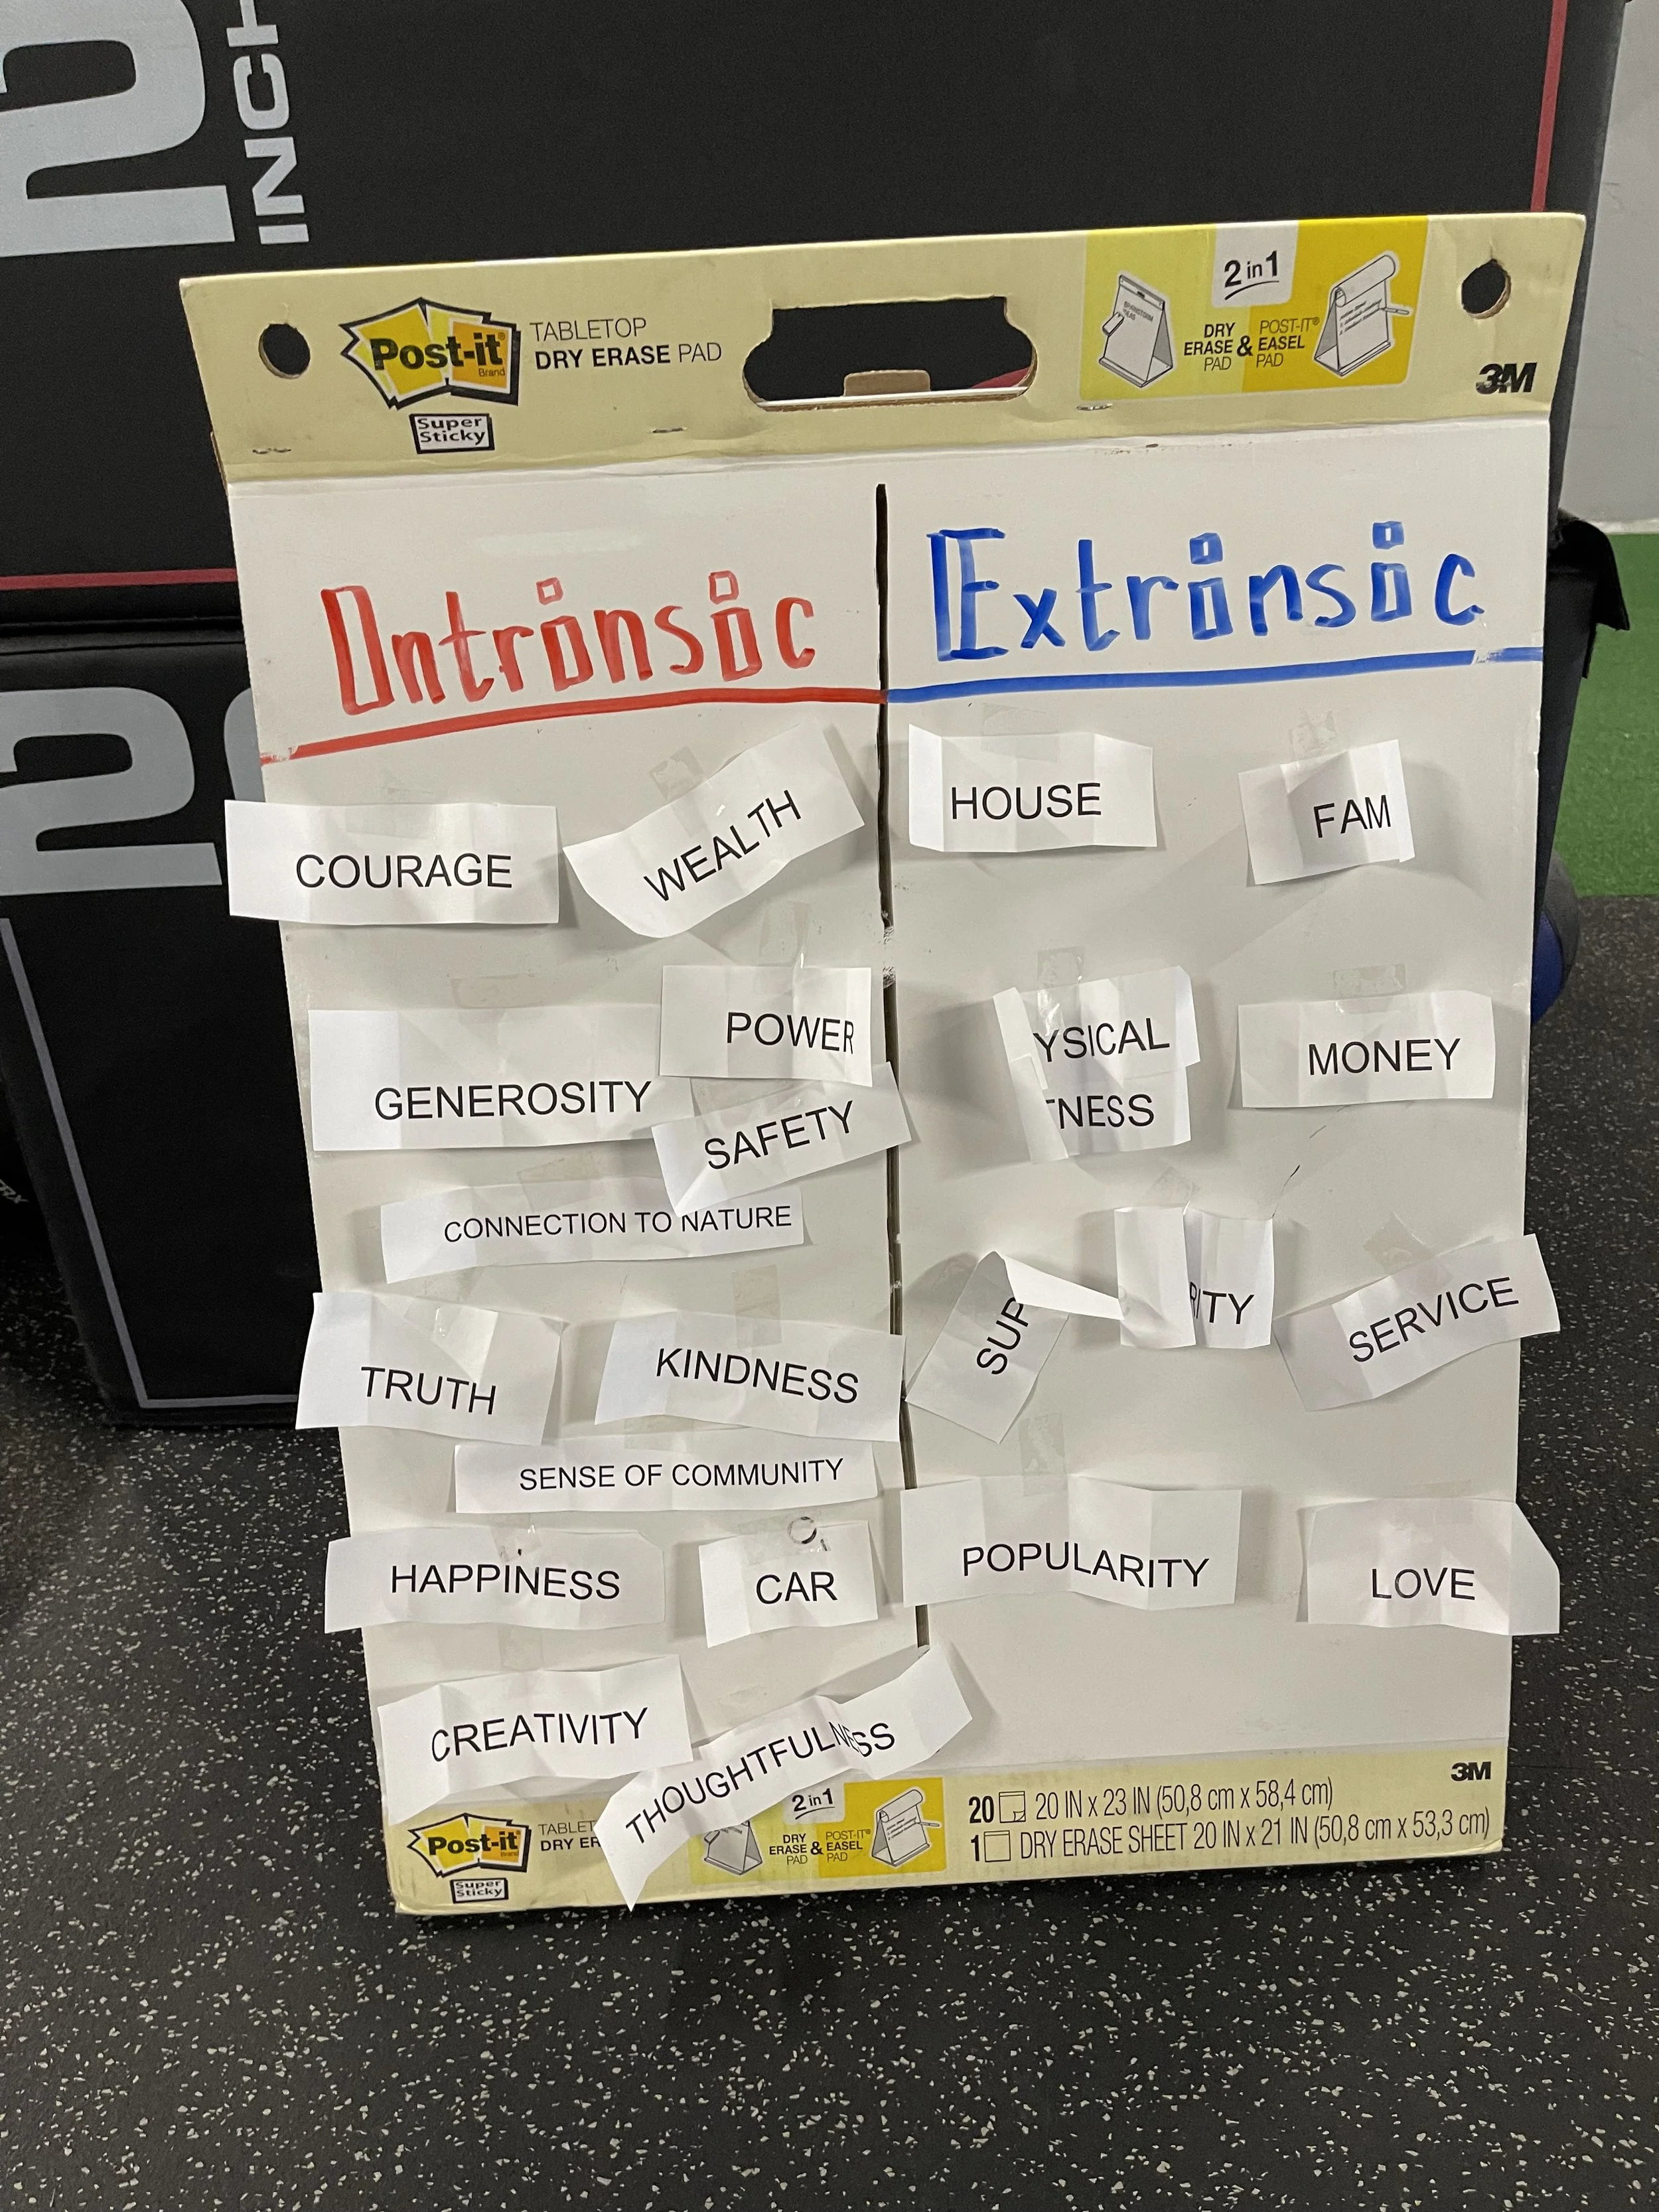 2
INCH
2 in 1
Post-it
Brand
Super
Sticky
TABLETOP
DRY ERASE PAD
DRY
ERASE
PAD
&
POST-IT®
EASEL
PAD
3M
Intrinsic
Extrinsic
COURAGE
WEALTH
HOUSE
FAM
POWER
GENEROSITY
SAFETY
YSICAL
NESS
MONEY
CONNECTION TO NATURE
SUP
RITY
SERVICE
TRUTH
KINDNESS
SENSE OF COMMUNITY
POPULARITY
LOVE
HAPPINESS
CAR
CREATIVITY
THOUGHTFULNESS
3M
Post-it
Super
Sticky
TABLET
DRY ER
2 in 1
DRY
ERASE
PAD
&
POST-IT®
EASEL
PAD
20 20 IN x 23 IN (50,8 cm x 58,4 cm)
1 DRY ERASE SHEET 20 IN x 21 IN (50,8 cm x 53,3 cm)